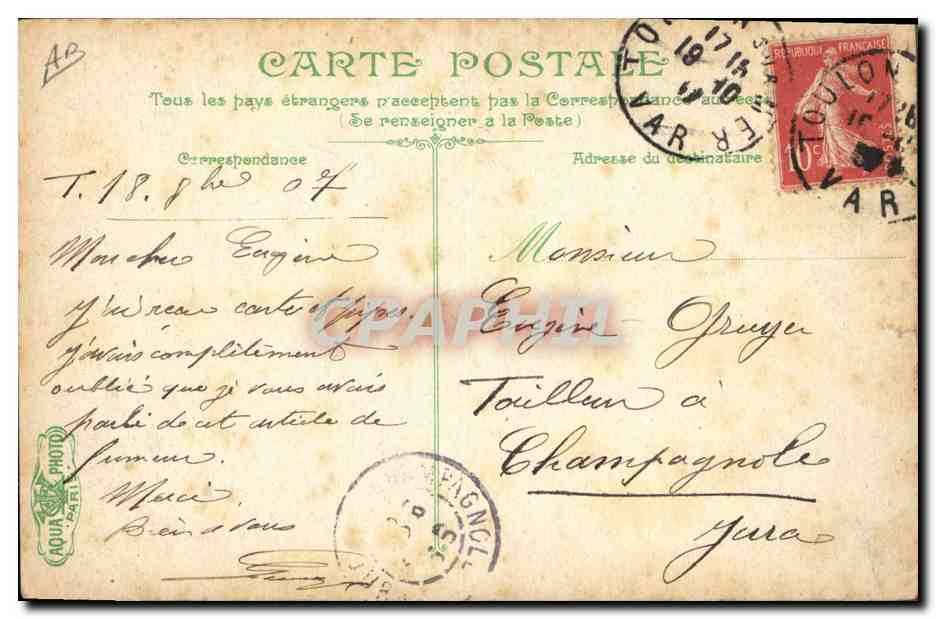 AB
CARTE POSTALE
Tous les pays étrangers n'acceptent pas la Correspondance au recto
(Se renseigner à la Poste)
Correspondance
T. 18. 8bre 07
Mon cher Eugène
J'ai reçu carte et pipes.
J'avais complètement
oublié que je vous avais
parlé de cet article de
fumeur.
Merci
Bien à vous
Adresse du destinataire
Monsieur
Eugène
Tailleur à
Champagnole
Jura
REPUBLIQUE FRANÇAISE
10c
TOULON
VAR
TOULON
VAR
CHAMPAGNOLE
AQUA PHOTO
PARIS
CPAPHIL